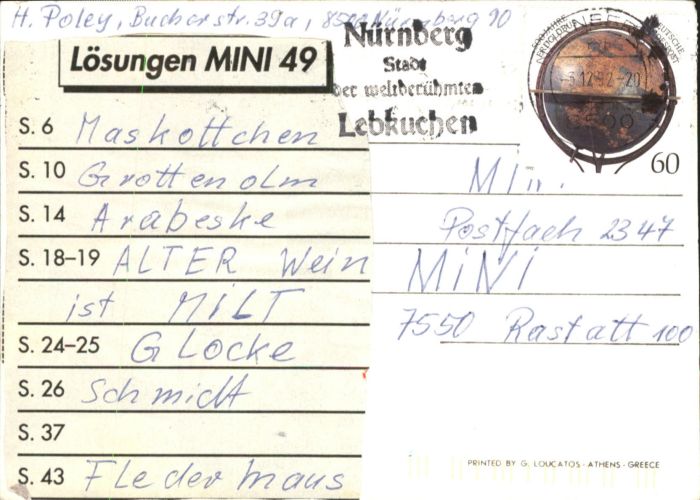 H. Poley, Bucherstr. 39a, 8500 Nürnberg 90
Nürnberg
Stadt
der weltberühmten
Lebkuchen
DEUTSCHE
60
Lösungen MINI 49
S. 6 Maskottchen
S. 10 Grottenolm
S. 14 Arabeske
S. 18–19 ALTER Wein
ist MILT
S. 24–25 GLocke
S. 26 Schmidt
S. 37
S. 43 Fledermaus
Mini
Postfach 2347
MiNi
7550 Rastatt 100
PRINTED BY G. LOUCATOS - ATHENS - GREECE